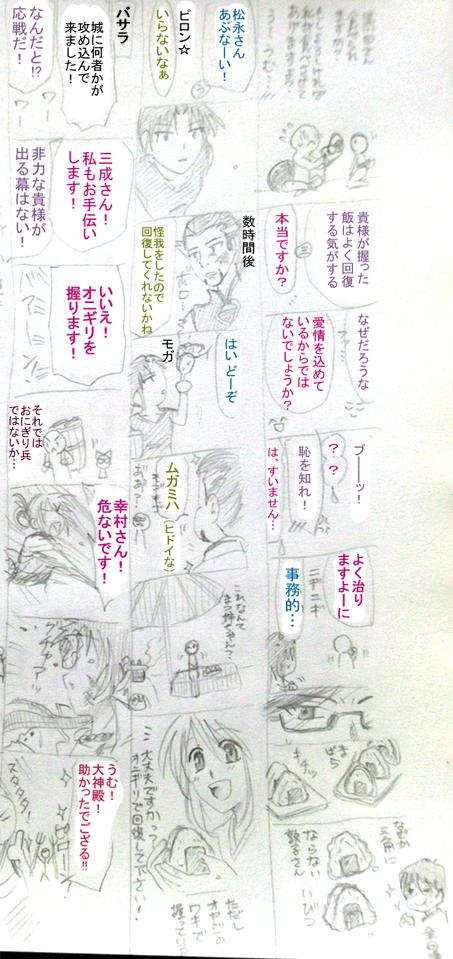 貴様が握った
飯はよく回復
する気がする
本当ですか?
なぜだろうな
愛情を込めて
いるからでは
ないでしょうか?
ブーーッ!
?
?
恥を知れ!
は、すいません…
よく治り
ますよーに
ニギニギ
事務的…
キチッ
なぜか
三角に
ならない
いびつ
松永さん
あぶなーい!
ピロン☆
いらないなぁ
数時間後
怪我をしたので
回復してくれないかね
はい どーぞ
モガ
ムガミハ(ヒドイな)
これなんて
大丈夫ですかっ
オニギリで回復して下さい!
ただし
オヤジの
ワキで
バサラ
城に何者かが
攻め込んで
来ました!
なんだと!?
応戦だ!
ワー
ワー
三成さん!
私もお手伝い
します!
非力な貴様が
出る幕はない!
いいえ!
オニギリを
握ります!
それでは
おにぎり兵
ではないか…
幸村さん!
危ないです!
うむ!
大神殿!
助かったでござる!!
ピローン
スタスタ!